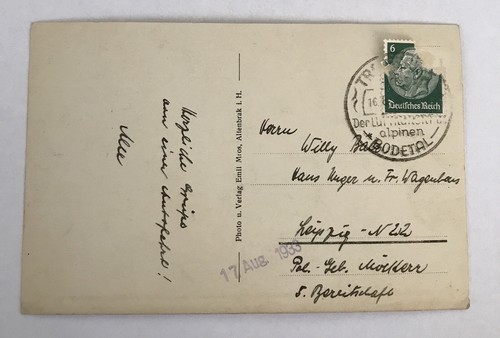 Herzliche Grüße
von einer Autofahrt!
Photo u. Verlag Emil Mros, Altenbrak i. H.
17 Aug. 1933
6
Deutsches Reich
TR
16.
Der Luftkurort
alpinen
BODETAL
Herrn
Willy
Hans Unger u. Fr. Wagenhaus
Leipzig - N 22
Pol.- Geb. Möckern
5. Bereitschaft